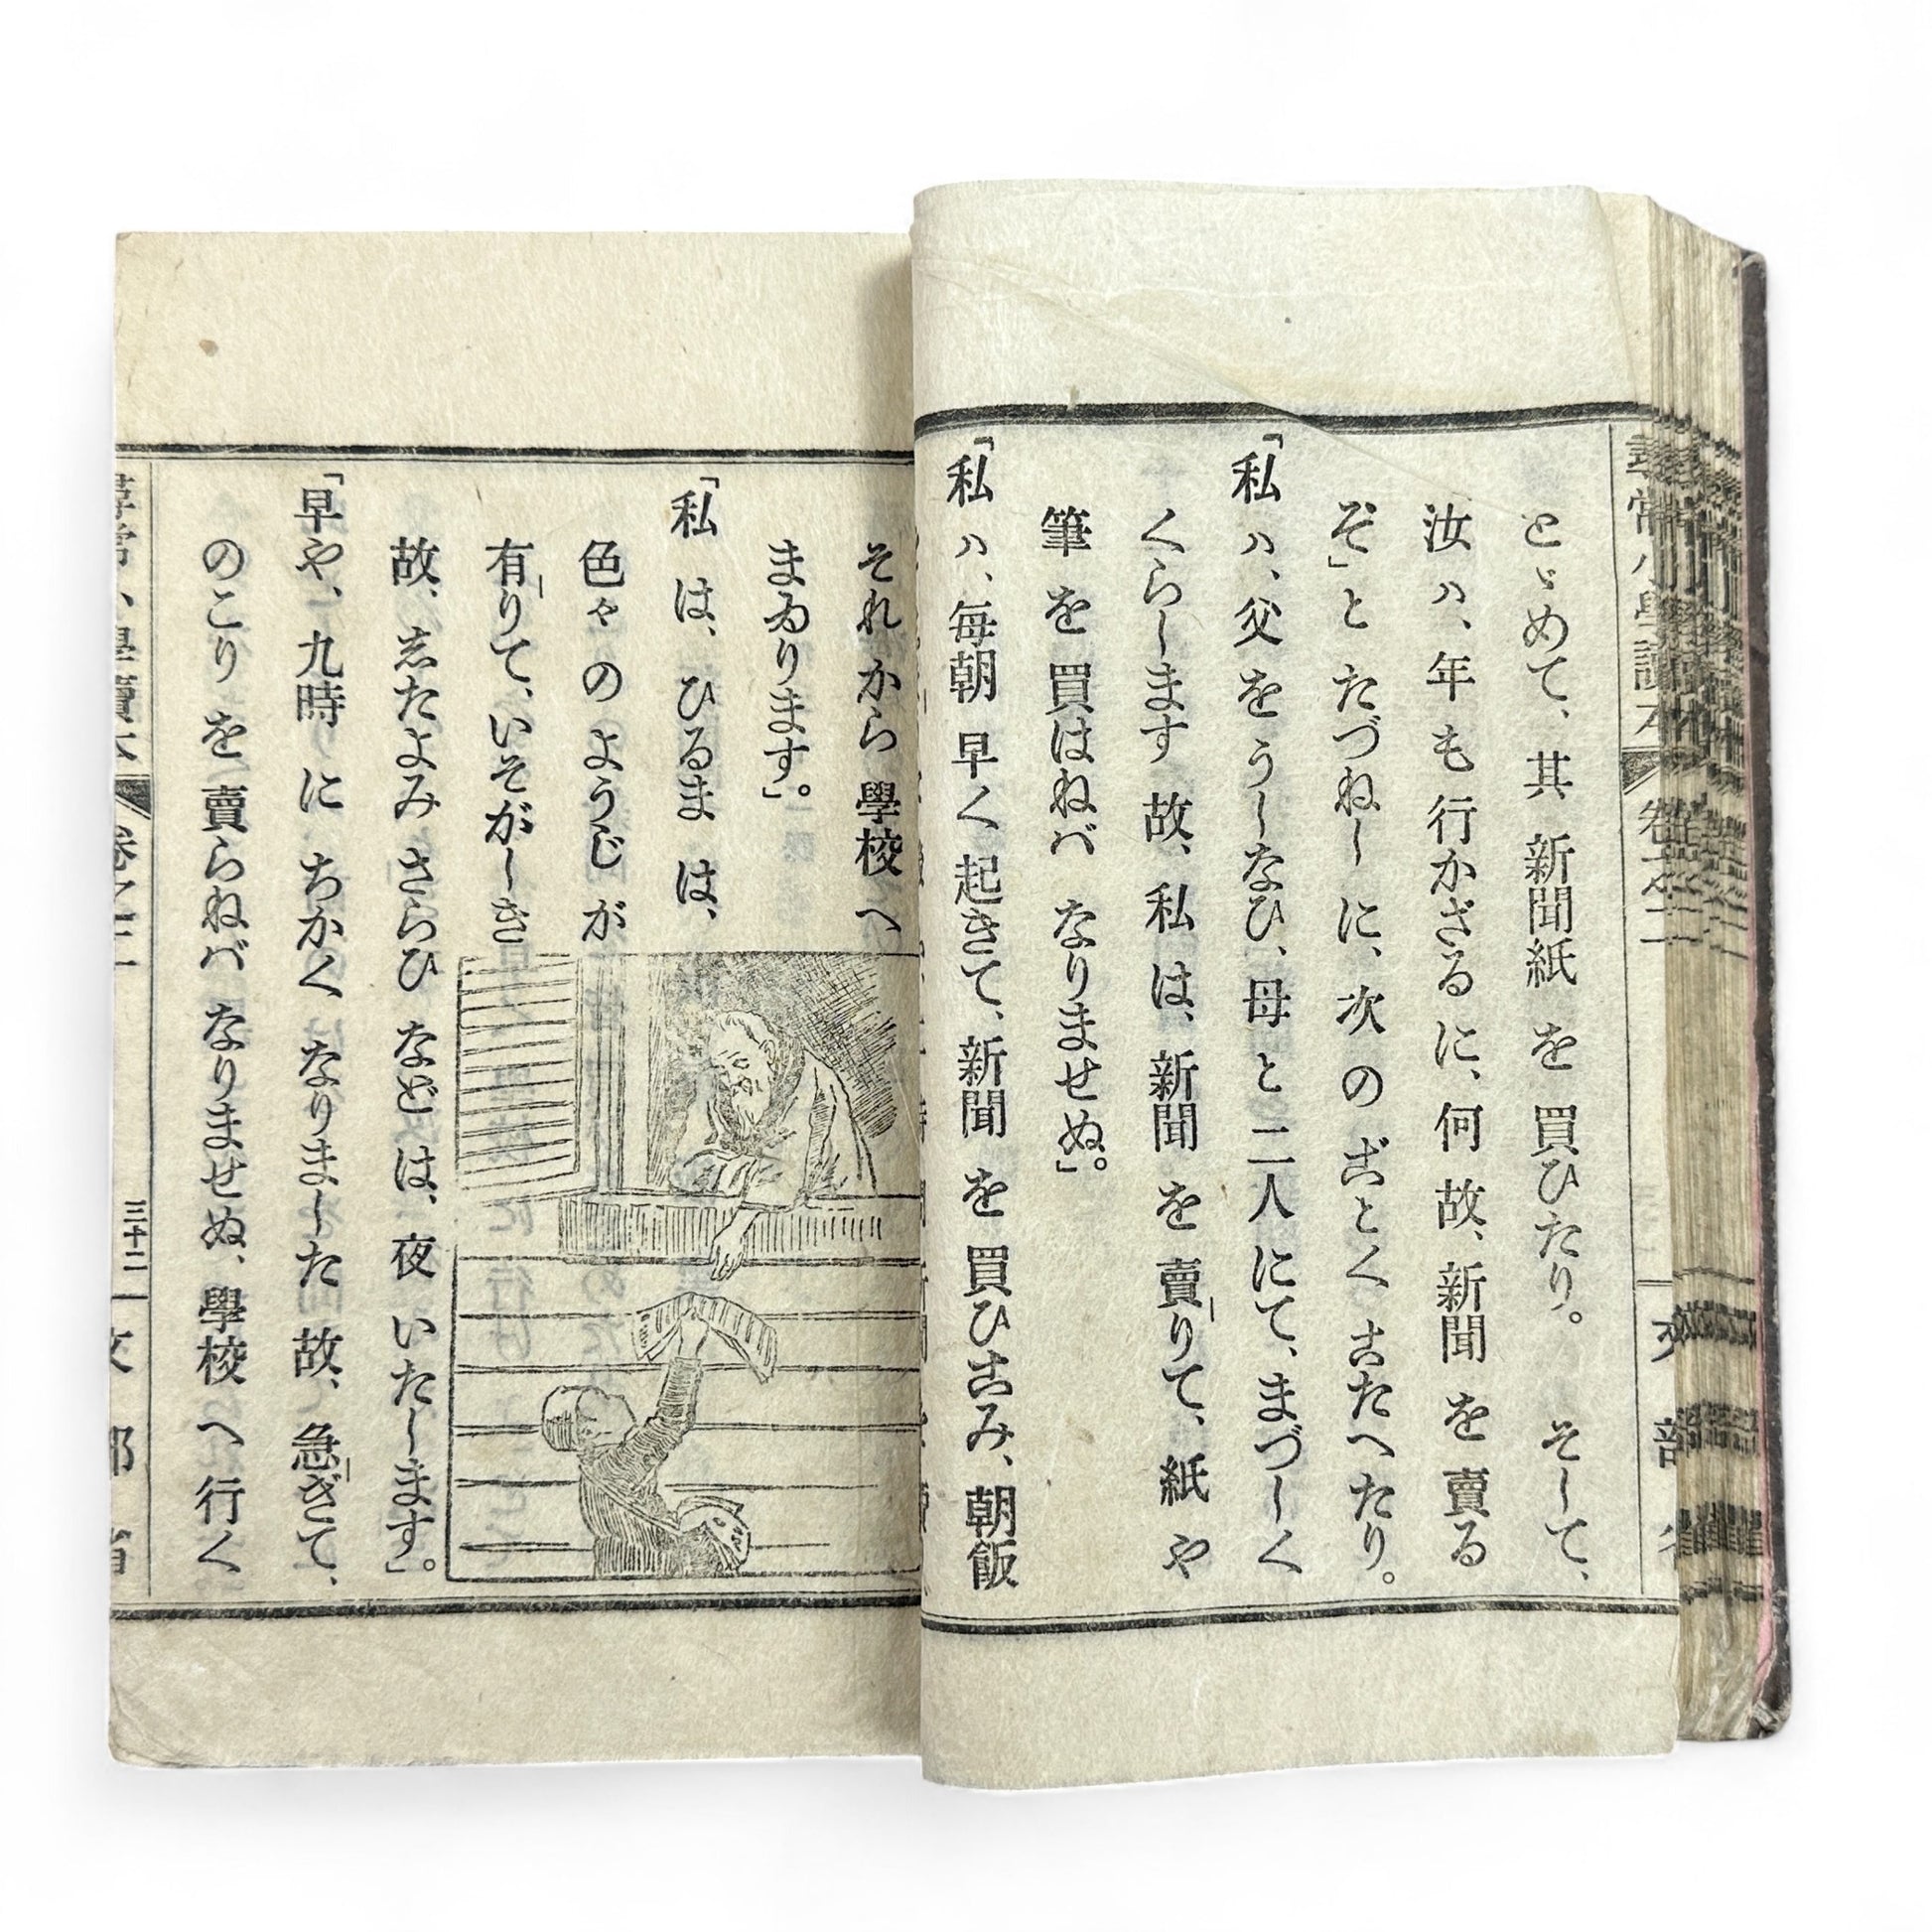 とゞめて、其 新聞紙 を 買ひたり。 そして、
汝ハ、年も 行かざるに、何故、新聞 を 賣る
ぞ」と たづねしに、次の ごとく こたへたり。
「私ハ、父を うしなひ、母と 二人 にて、まづしく
くらします 故、私は、新聞 を 賣りて、紙や
筆を 買はねバ なりませぬ」。
「私ハ、毎朝 早く 起きて、新聞 を 買ひこみ、朝飯
それから 學校へ
まゐります」。
「私は、ひるまは、
色々の ようじが
有りて、いそがしき
故、したよみ さらひ などは、夜 いたします」。
「早や、九時 に ちかく なりました 故、急ぎて、
のこり を 賣らねバ なりませぬ、學校へ 行く
三十二